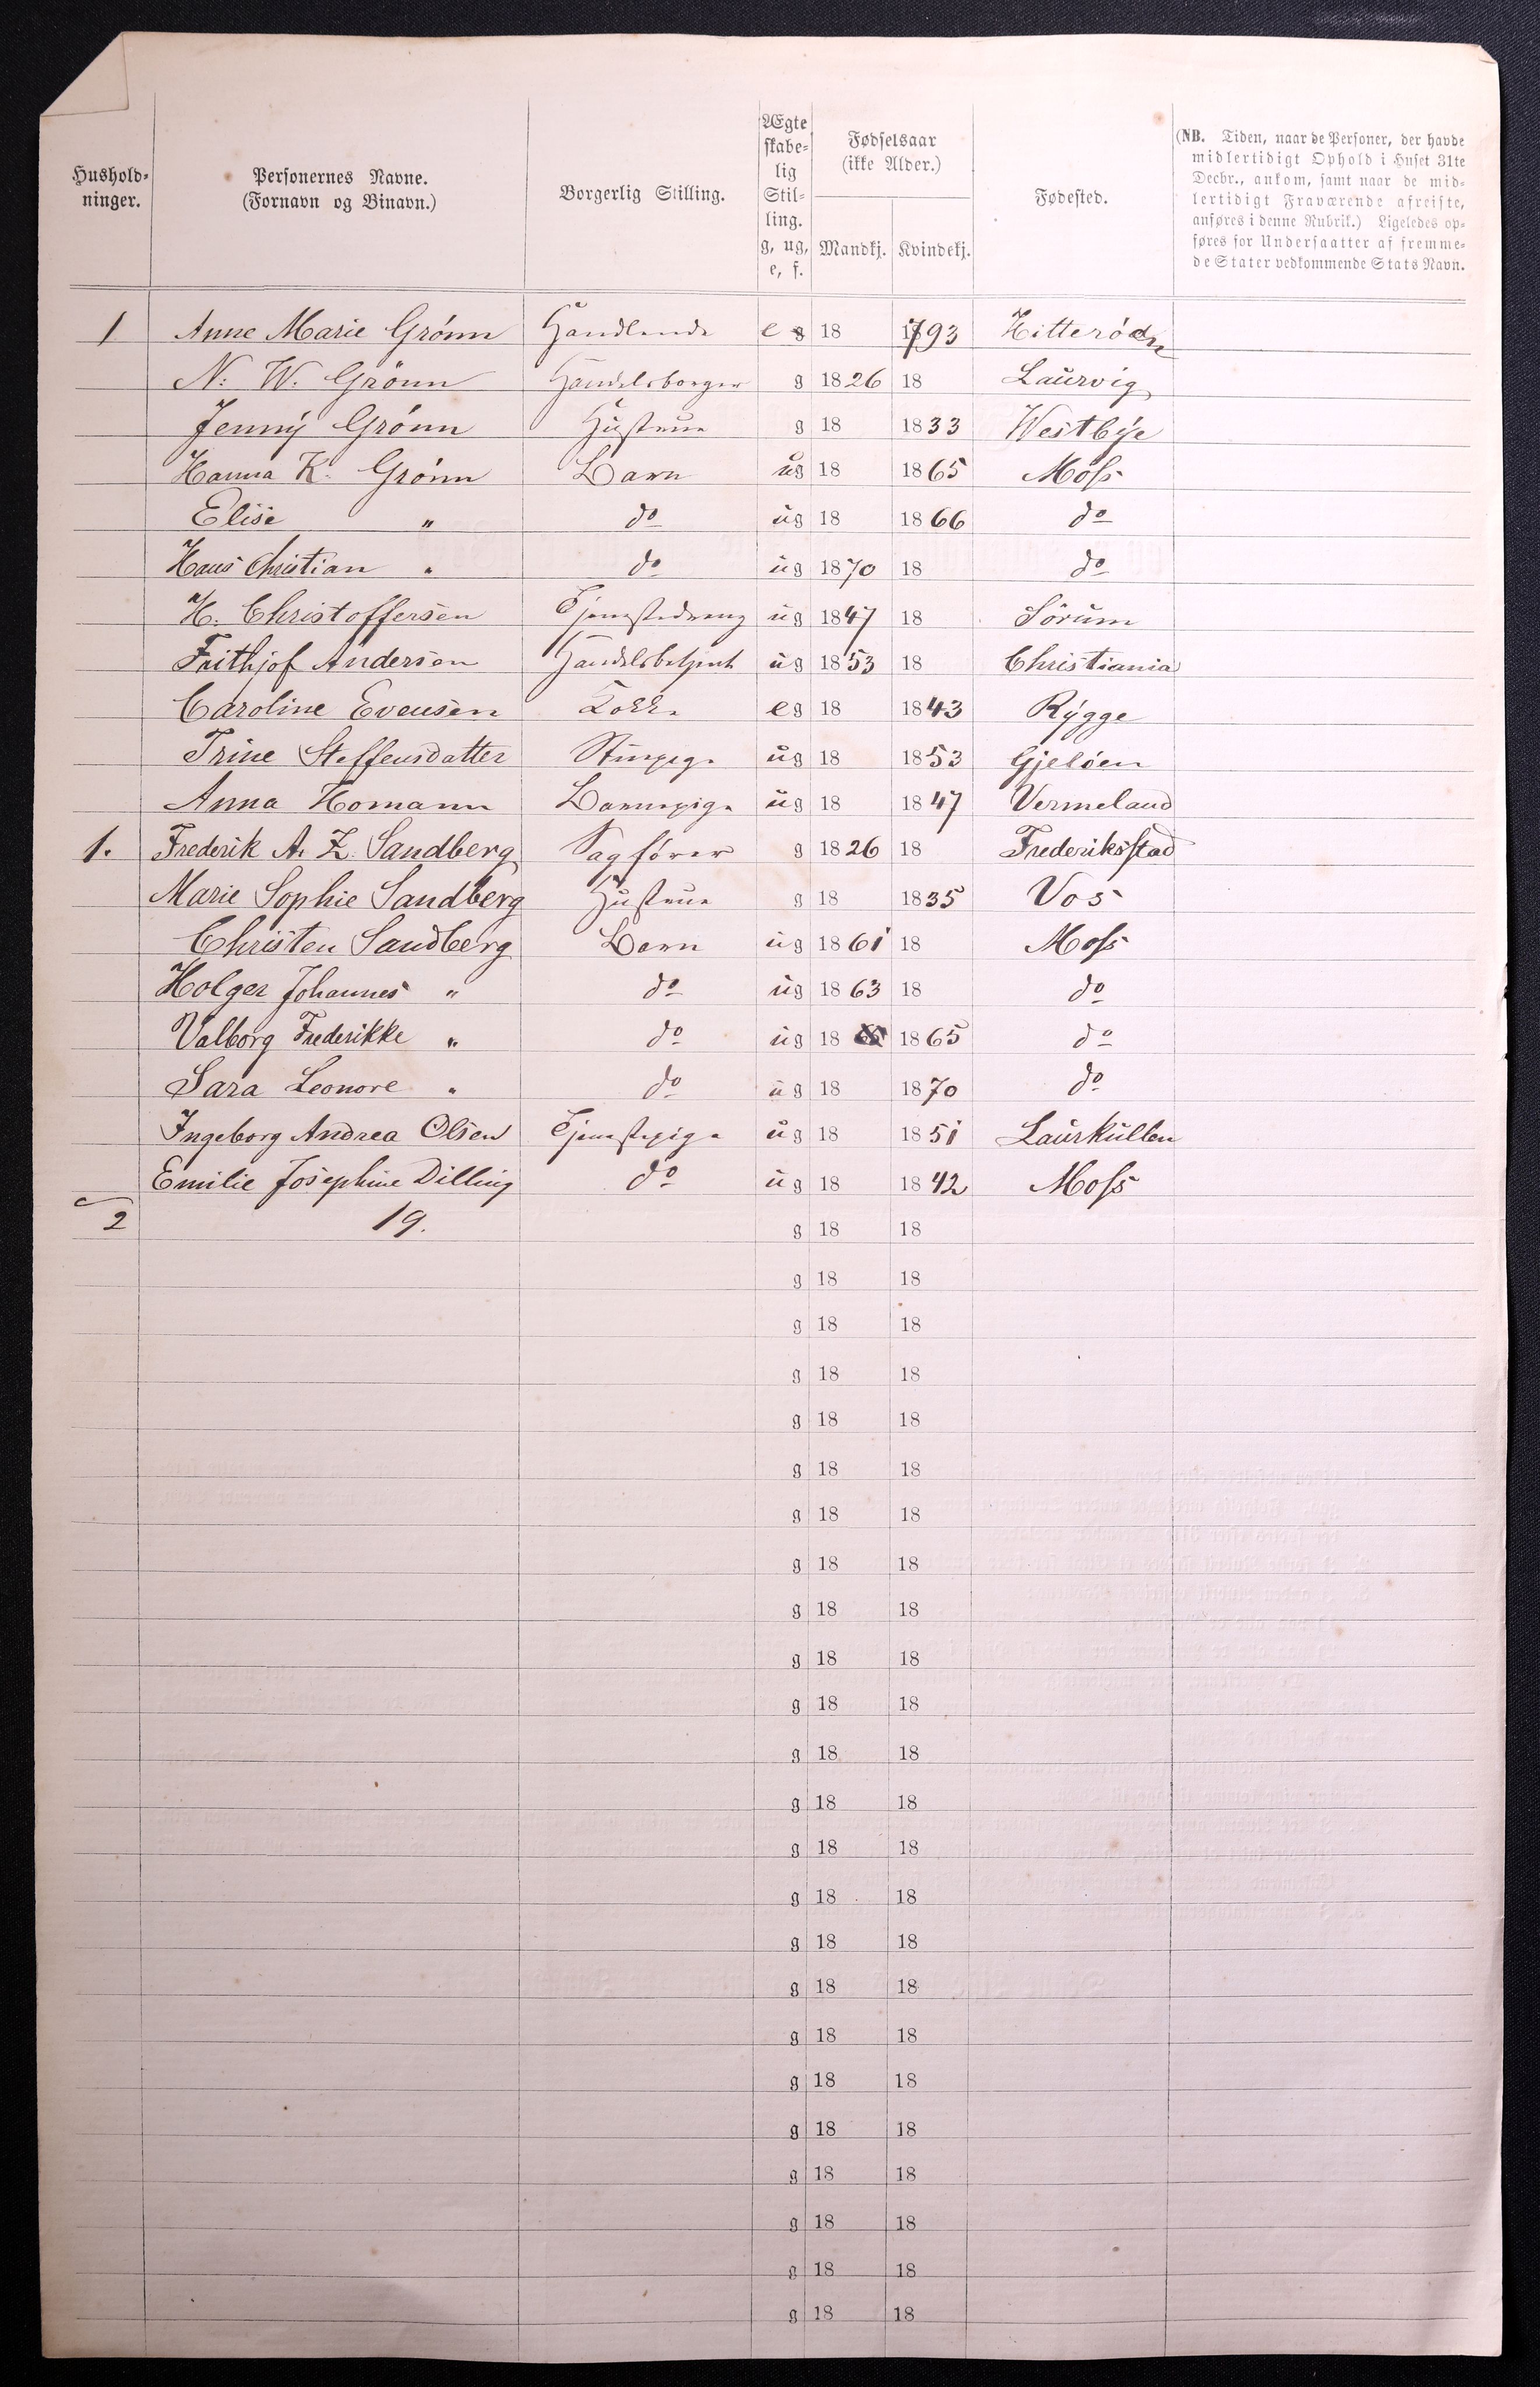 Hushold-
ninger.
Personernes Navne.
(Fornavn og Binavn.)
Borgerlig Stilling.
Ægte
skabe-
lig
Stil-
ling.
g, ug,
e, f.
Fødselsaar
(ikke Alder.)
Mandkj. Kvindekj.
Fødested.
(NB. Tiden, naar de Personer, der havde
midlertidigt Ophold i Huset 31te
Decbr., ankom, samt naar de mid-
lertidigt Fraværende afreiste,
anføres i denne Rubrik.) Ligeledes op-
føres for Undersaatter af fremme-
de Stater vedkommende Stats Navn.
1 Anne Marie Grönn Handlende e g 18 1793 Hitteröden
N. W. Grönn Handelsborger g 1826 18 Laurvig
Jenny Grönn Hustrue g 18 1833 Westbye
Hanna K. Grönn Barn ug 18 1865 Moss
Elise " do ug 18 1866 do
Hans Christian " do ug 1870 18 do
H. Christoffersen Tjenestedreng ug 1847 18 Sörum
Frithjof Andersen Handelsbetjent ug 1853 18 Christiania
Caroline Evensen Kokke eg 18 1843 Rygge
Trine Steffensdatter Stuepige ug 18 1853 Gjelöen
Anna Homann Barnepige ug 18 1847 Vermeland
1. Frederik A. Z. Sandberg Sagförer g 1826 18 Frederiksstad
Marie Sophie Sandberg Hustrue g 18 1835 Vos
Christen Sandberg Barn ug 1861 18 Moss
Holger Johannes " do ug 1863 18 do
Valborg Frederikke " do ug 18 1865 do
Sara Leonore " do ug 18 1870 do
Ingeborg Andrea Olsen Tjenestepige ug 18 1851 Laurkullen
Emilie Josephine Dilling do ug 18 1842 Moss
2 19. g 18 18
g 18 18
g 18 18
g 18 18
g 18 18
g 18 18
g 18 18
g 18 18
g 18 18
g 18 18
g 18 18
g 18 18
g 18 18
g 18 18
g 18 18
g 18 18
g 18 18
g 18 18
g 18 18
g 18 18
g 18 18
g 18 18
g 18 18
g 18 18